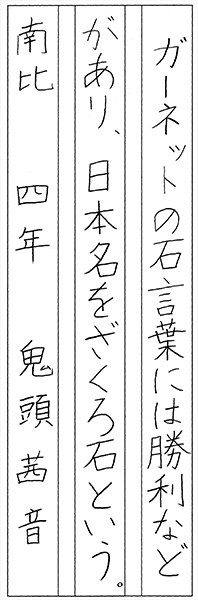 ガーネットの石言葉には勝利など
があり、日本名をざくろ石という。
南比 四年 鬼頭茜音